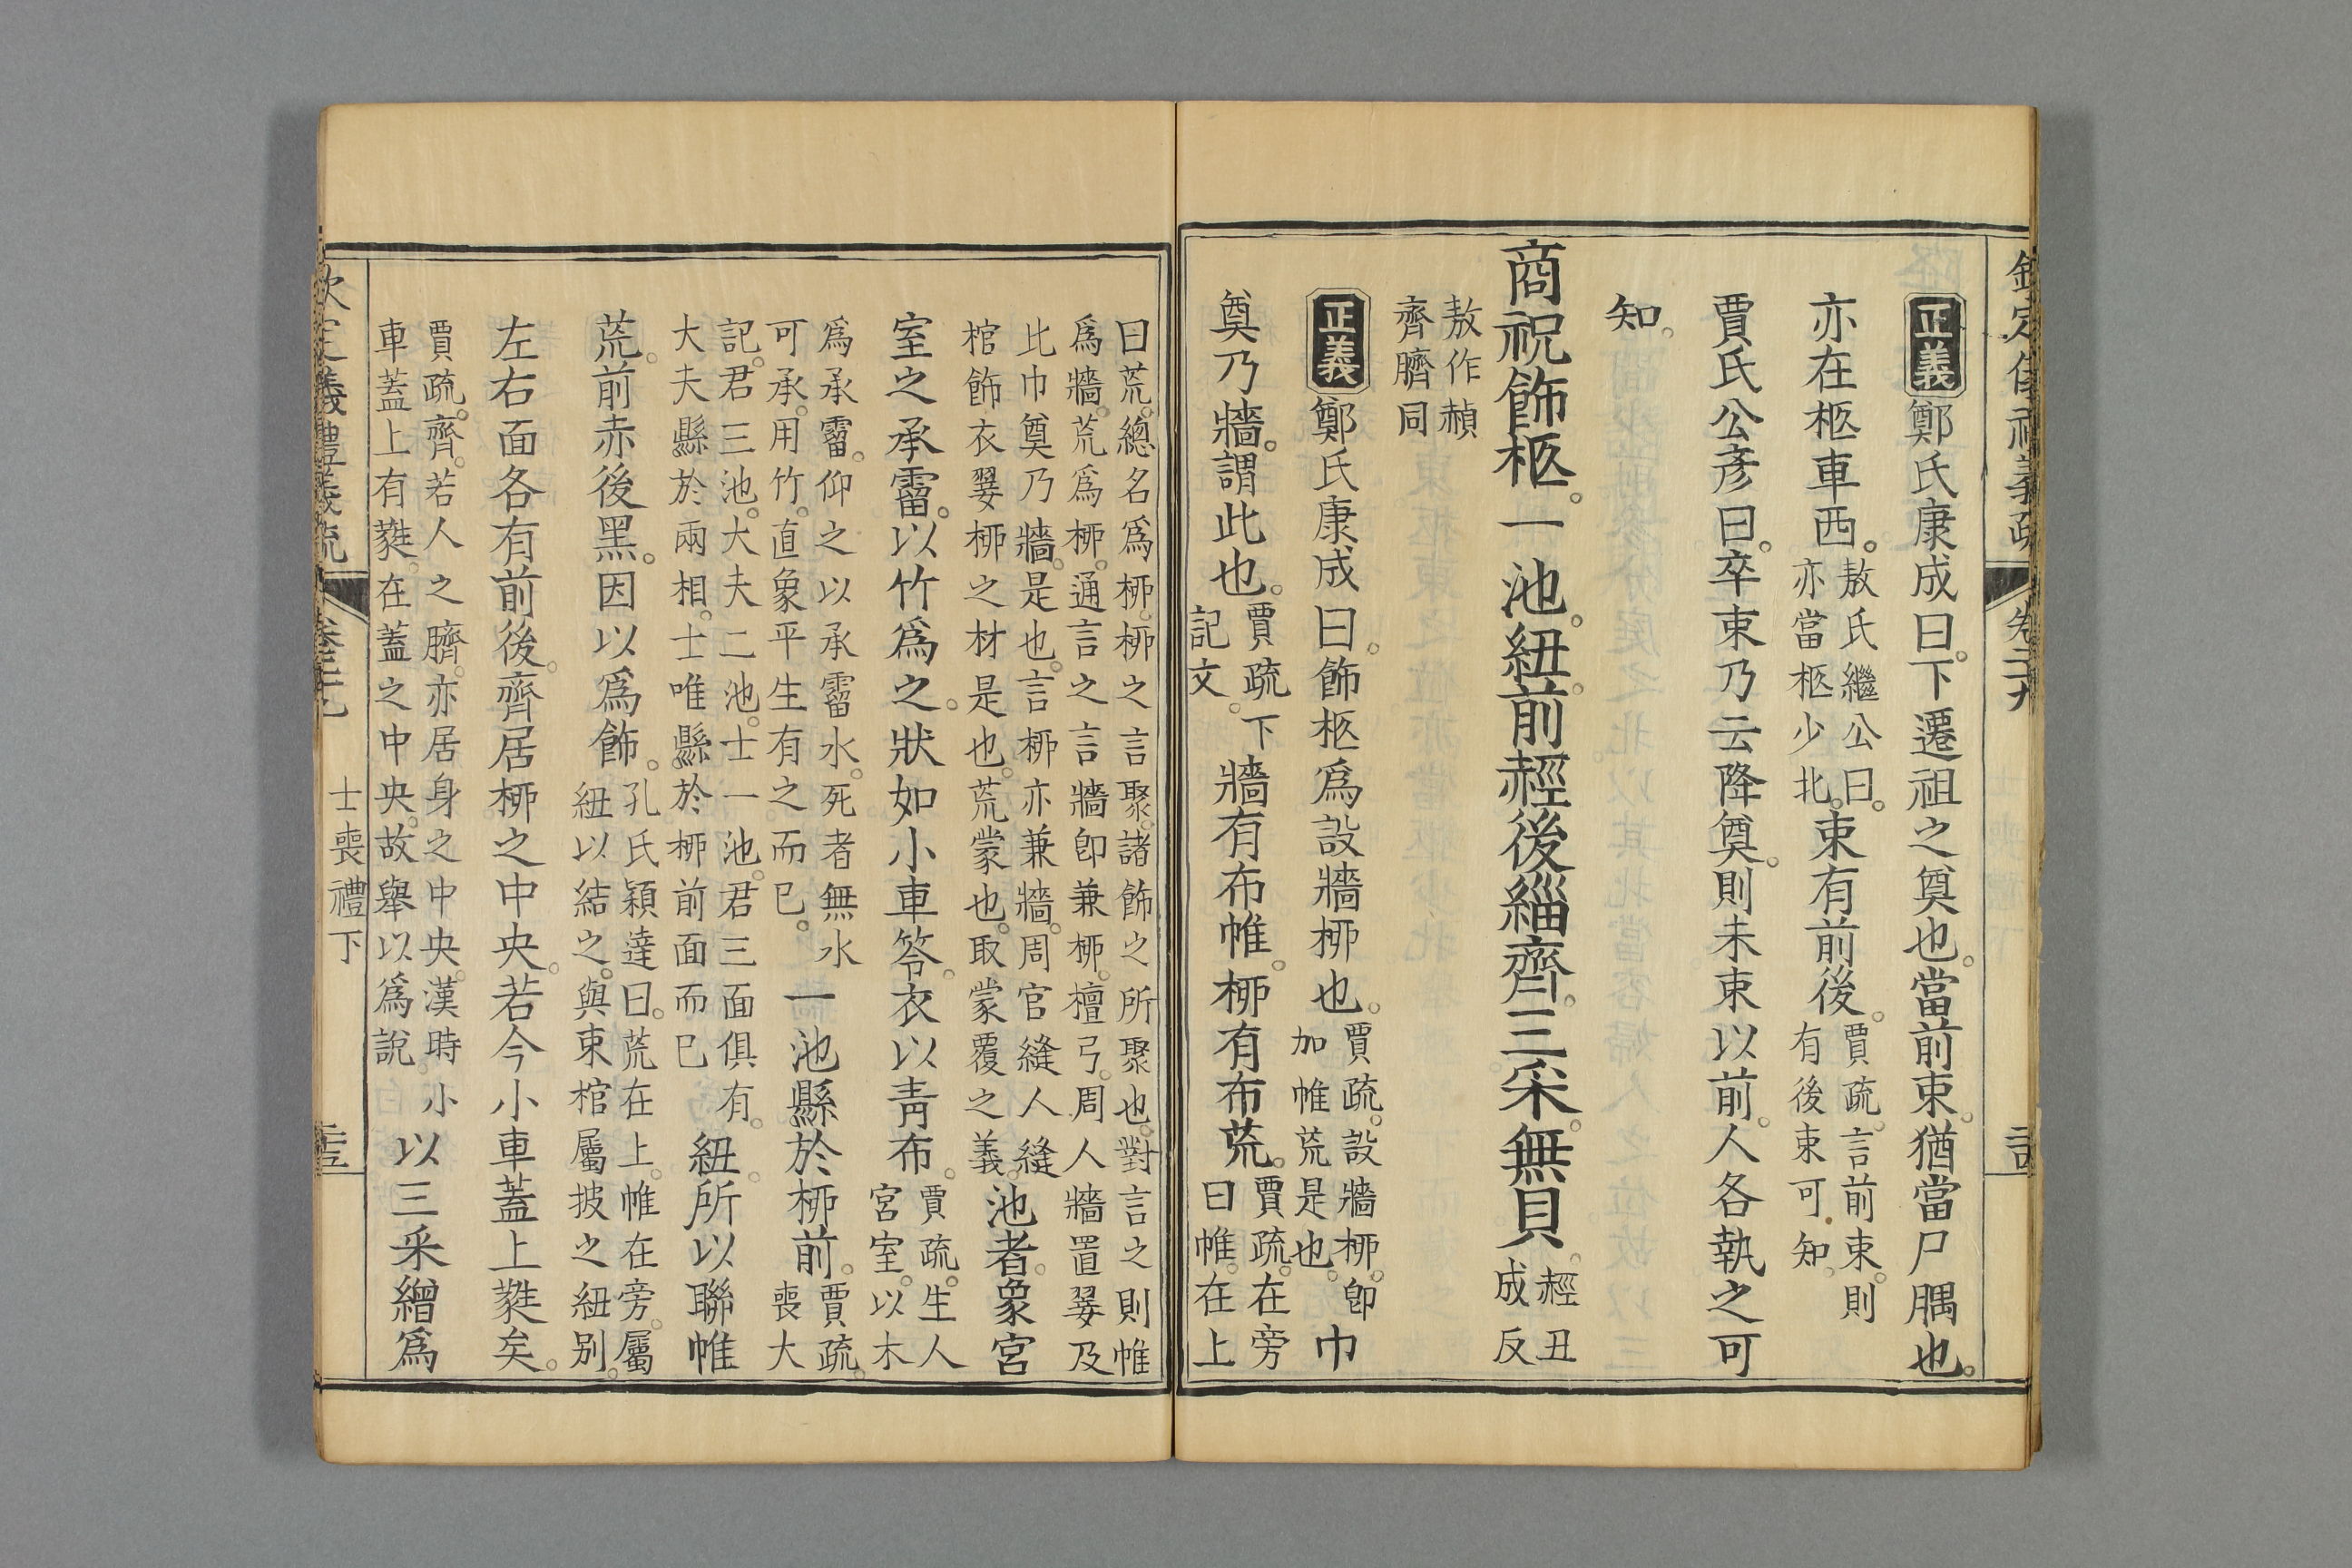 欽定儀禮義疏
正義 鄭氏康成曰下遷祖之奠也當前束猶當尸腢也
亦在柩車西敖氏繼公曰亦當柩少北束有前後賈疏言前束則有後束可知
賈氏公彥曰卒束乃云降奠則未束以前人各執之可
知
商祝飾柩一池紐前䞓後緇齊三采無貝䞓丑成反
敖作赬齊臍同
正義 鄭氏康成曰飾柩爲設牆栁也賈疏設牆栁卽加帷荒是也巾
奠乃牆謂此也賈疏下記文牆有布帷栁有布荒賈疏在旁曰帷在上
曰荒總名爲栁栁之言聚諸飾之所聚也對言之則帷
爲牆荒爲栁通言之言牆卽兼栁檀弓周人牆置翣及
此巾奠乃牆是也言栁亦兼牆周官縫人縫
棺飾衣翣栁之材是也荒蒙也取蒙覆之義池者象宮
室之承霤以竹爲之狀如小車笭衣以青布賈疏生人宮室以木
爲承霤仰之以承霤水死者無水
可承用竹直象平生有之而已一池縣於栁前賈疏喪大
記君三池大夫二池士一池君三面俱有
大夫縣於兩相士唯縣於栁前面而已紐所以聯帷
荒前赤後黑因以爲飾孔氏穎達曰荒在上帷在旁屬紐以結之與束棺屬披之紐别
左右面各有前後齊居栁之中央若今小車蓋上蕤矣
賈疏齊若人之臍亦居身之中央漢時小
車蓋上有蕤在蓋之中央故舉以爲說以三采繒爲
士喪禮下